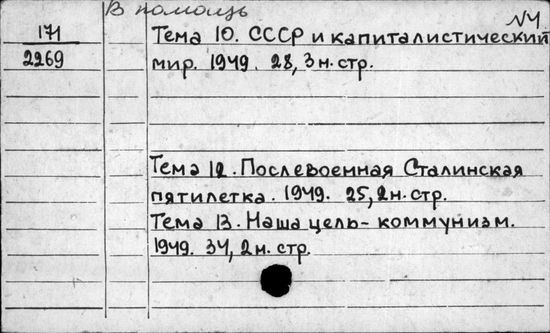 В помощь
№4
171
2269
Тема 10. СССР и капиталистический
мир. 1949. 28, 3 н. стр.
Тема 12. Послевоенная Сталинская
пятилетка. 1949. 25, 2 н. стр.
Тема 13. Наша цель - коммунизм.
1949. 34, 2 н. стр.